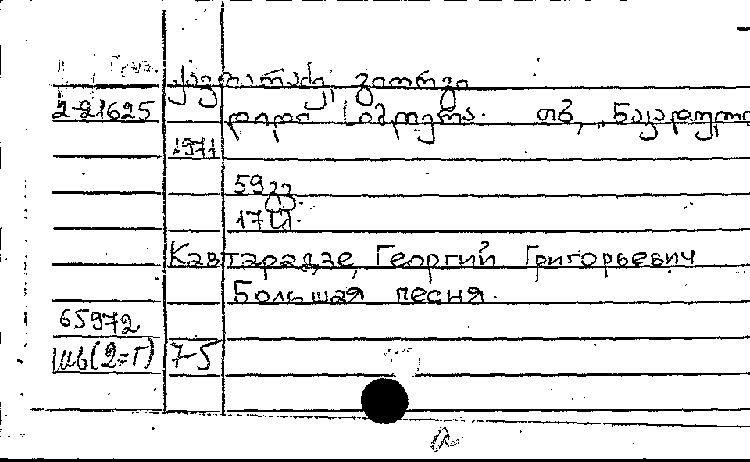 ქავთარაძე, გიორგი
2-21625
დიდი სიმღერა. თბ, „ნაკადული
1971
59 გვ
17 ს.
Кавтарадзе, Георгий Григорьевич
Большая песня.
65972
шв(2=Г) 7-5